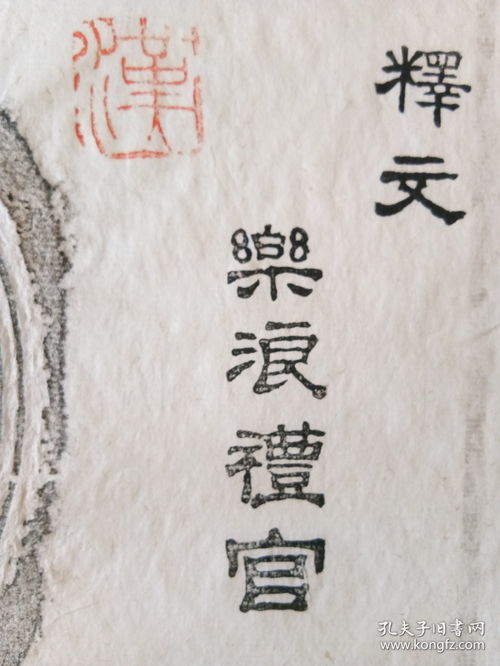 釋文
樂浪禮官
漢
孔夫子旧书网
www.kongfz.com